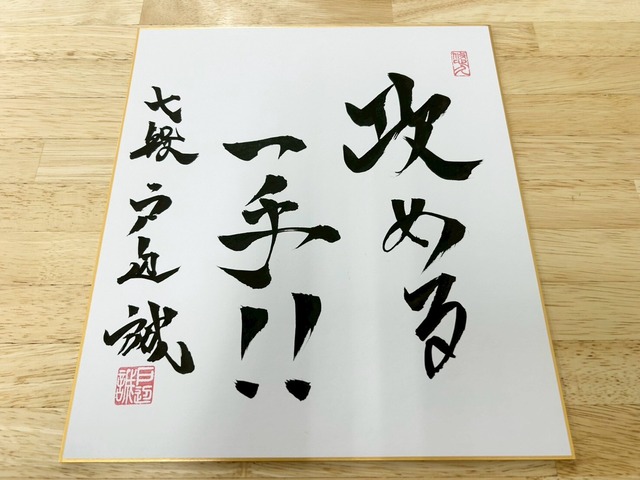 攻める
一手!!
七段 戸辺誠